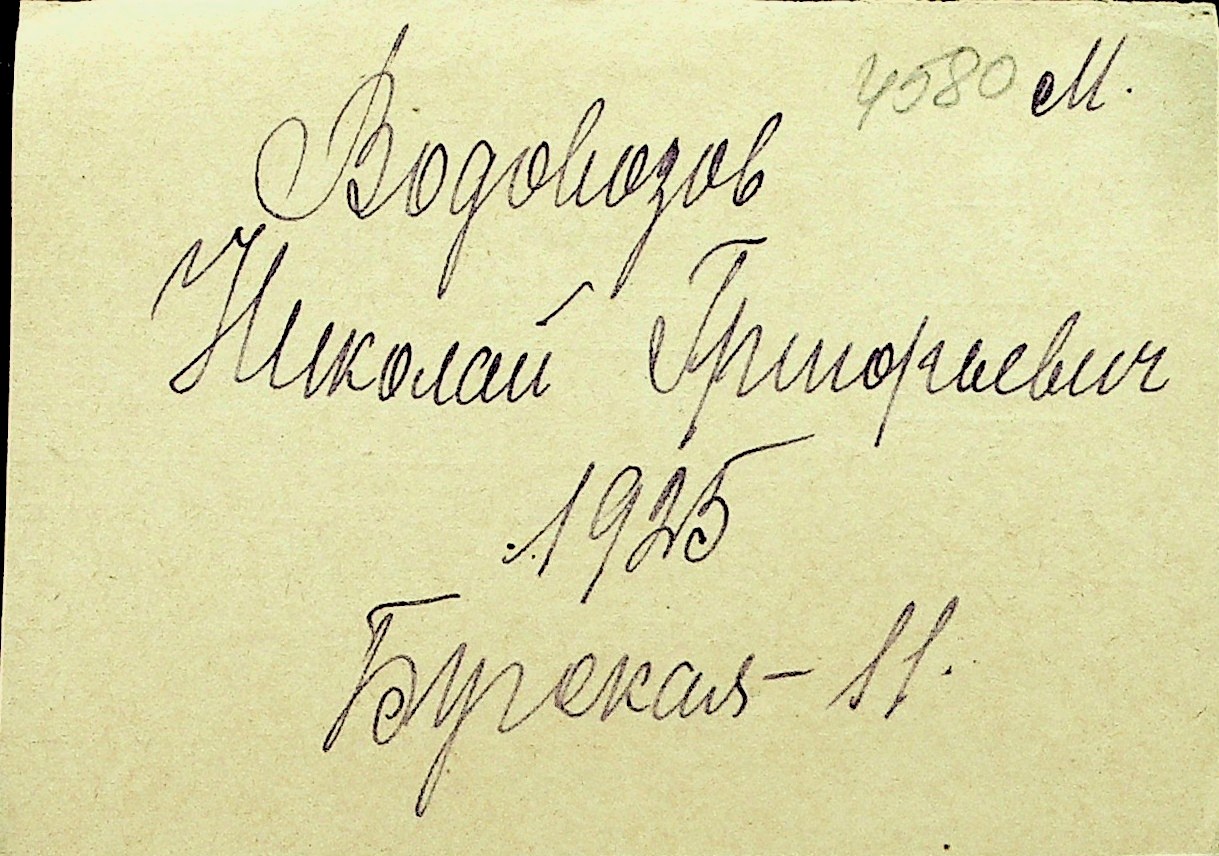 4580 М.
Водовозов
Николай Григорьевич
1925
Бугская - 11.